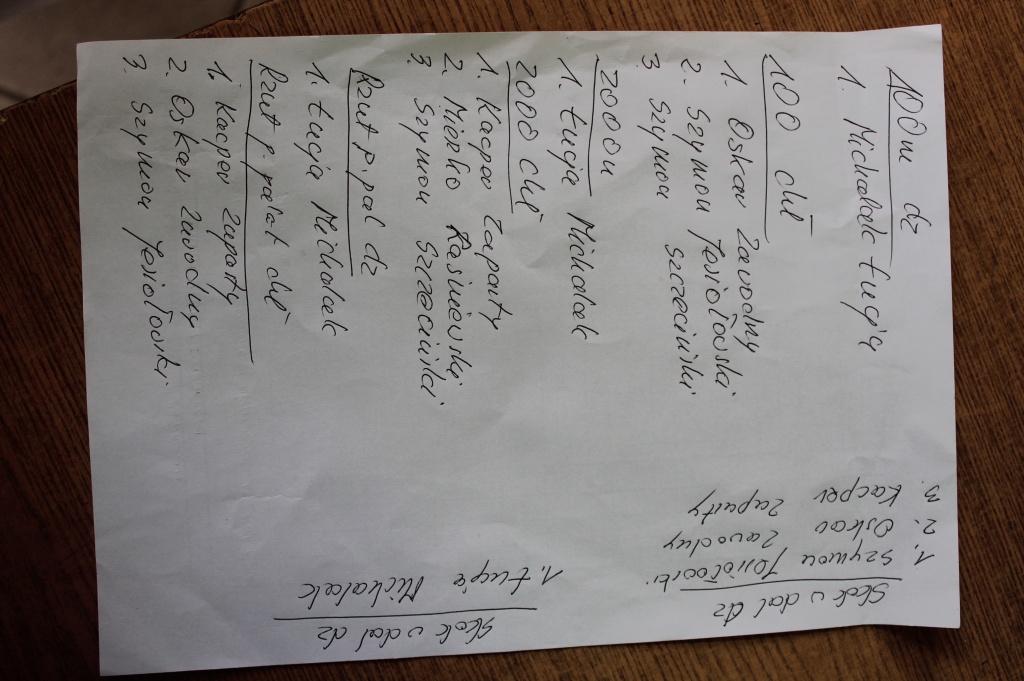 100m dz
1. Michalak Łucja
100 chł
1. Oskar Zawodny
2. Szymon Jesiołowski
3 Szymon Szczeciński
2000m
1. Łucja Michalak
2000 chł
1. Kacper Zaparty
2. Mieszko Rasiniewski
3 Szymon Szczeciński
Rzut p. pal dz
1. Łucja Michalak
Rzut p. palat chł
1. Kacper Zaparty
2. Oskar Zawodny
3. Szymon Jesiołowski
Skok w dal dz
1. Szymon Jesiołowski
2. Oskar Zawodny
3. Kacper Zaparty
Skok w dal dz
1. Łucja Michalak